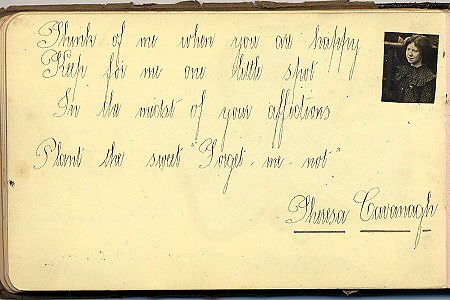 Think of me when you are happy
Keep for me one little spot
In the midst of your affections
Plant the sweet "Forget-me-not"
Theresa Cavanagh